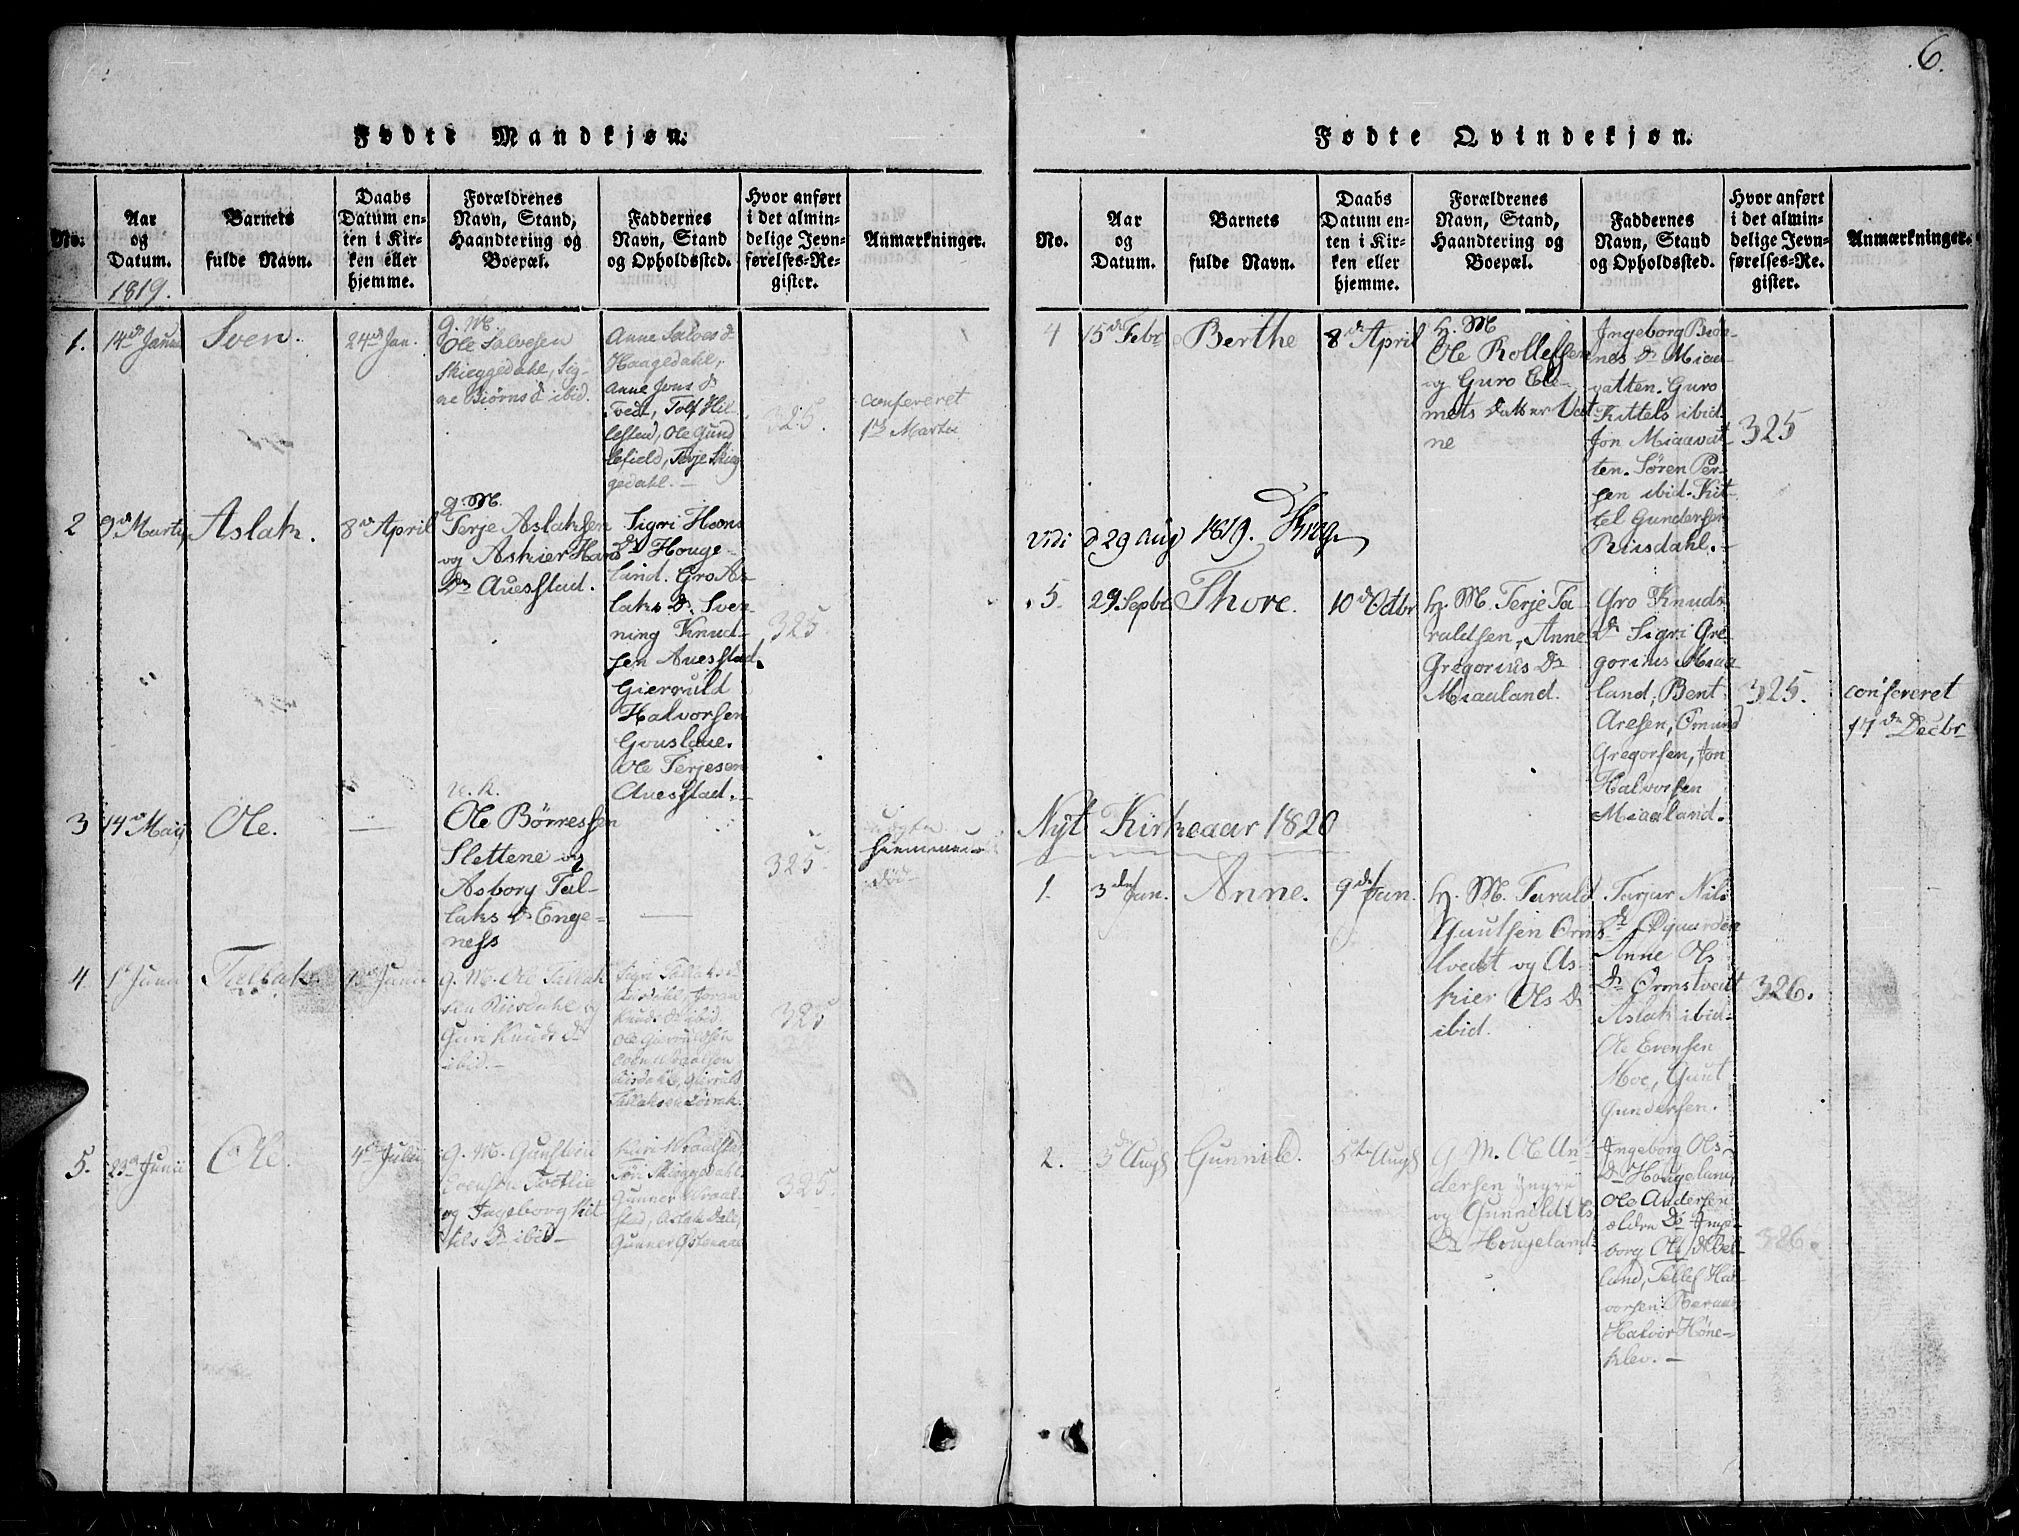 6.
Fødte Mandkjøn.
No.
Aar
og
Datum.
1819.
Barnets
fulde Navn.
Daabs
Datum en-
ten i Kir-
ken eller
hjemme.
Forældrenes
Navn, Stand,
Haandtering og
Boepæl.
Faddernes
Navn, Stand
og Opholdssted.
Hvor anført
i det almin-
delige Jevn-
førelses-Re-
gister.
Anmærkninger.
1.
14de Janu
Sven.
24de Jan.
g. M
Ole Salvesen
Skieggedahl, Sig-
ne Biørns D ibid.
Anne Salves D
Haagedahl,
Anne Jons D
Tvedt, Tolf Hil-
lesten, Ole Gund
lefield, Terje Skieg
gedahl. —
325.
confereret
1ste Martii
2
9de Marty
Aslak.
8de April
g. M.
Terje Aslaksen
og Askier Hans
Dr Auesstad.
Sigri Hoons
Dr Houge-
land. Gro As-
laks D. Sven-
ning Knud-
sen Auesstad.
Gierruld
Halvorsen
Gouslaue.
Ole Terjesen
Auesstad.
325.
3
14de May
Ole.
—
Ole Børressen
Slettene og
Asborg Tal-
laks D Enge-
ness
—
325
hiemme-
død
4.
1ste Junii
Tallak.
Junii
g. M. Ole Tallak
sen Riisdahl og
Guri Knuds Dr
ibid. —
Sigri Tallaks D
Riisdahl, Joran
Knuds D ibid
Ole Gierruldsen
Riisdahl, Gierruld
Tallaksen
325
5.
23de Junii
Ole.
4de Julii
g. M. Gunsten
Evensen
og Ingeborg Kit-
tils Dr ibid —
Kari Vraalstad,
Tøri Skieggedahl
Gunner Vraal-
stad, Aslak Dale,
Gunner
325.
Fødte Qvindekjøn.
No.
Aar
og
Datum.
Barnets
fulde Navn.
Daabs
Datum en-
ten i Kir-
ken eller
hjemme.
Forældrenes
Navn, Stand,
Haandtering og
Boepæl.
Faddernes
Navn, Stand
og Opholdssted.
Hvor anført
i det almin-
delige Jevn-
førelses-Re-
gister.
Anmærkninger.
4
15de Febr
Berthe
8de April
h. M
Ole Rollefsen
og Guro Cle-
mets datter Vat
ne
Ingeborg Biør-
nes Dr Miaa-
vatten. Guro
Kittels ibid.
Jon Miaavat-
ten. Søren Per-
sen ibid. Kit-
tel Gundersen
Riisdahl. —
325
Vidi d 29 Aug 1819. Krog
5.
29 Septbr
Thore.
10de Octbr
h. M. Terje Ta-
raldsen, Anne
Gregorius Dr
Miaaland.
Gro Knuds
Dr Sigri Gre-
gorius Miaa
land, Bent
Aresen, Omund
Gregorsen, Jon
Halvorsen
Miaaland.
325.
confereret
17de Decbr
Nyt Kirkeaar 1820
1.
3den Jan.
Anne.
9de Jan.
h. M. Tarald
Guutsen Orms
tvedt og As-
kier Ols D
ibid.
Turjur Nils
Dr Øygaarden
Anne Ols
Dr Ormstvedt
Aslak ibid.
Ole Evensen
Moe, Guut
Gundersen.
326.
2.
3de Augs
Gunnild.
5te Augs
g. M. Ole An-
dersen yngre
og Gunnild Ols
Dr Hougeland
Ingeborg Ols
Dr Hougeland,
Ole Andersen
ældre Ds Inge-
borg Ols D Bel-
land, Tellef Hal-
vorsen
Halvor Høne-
klev. —
326.